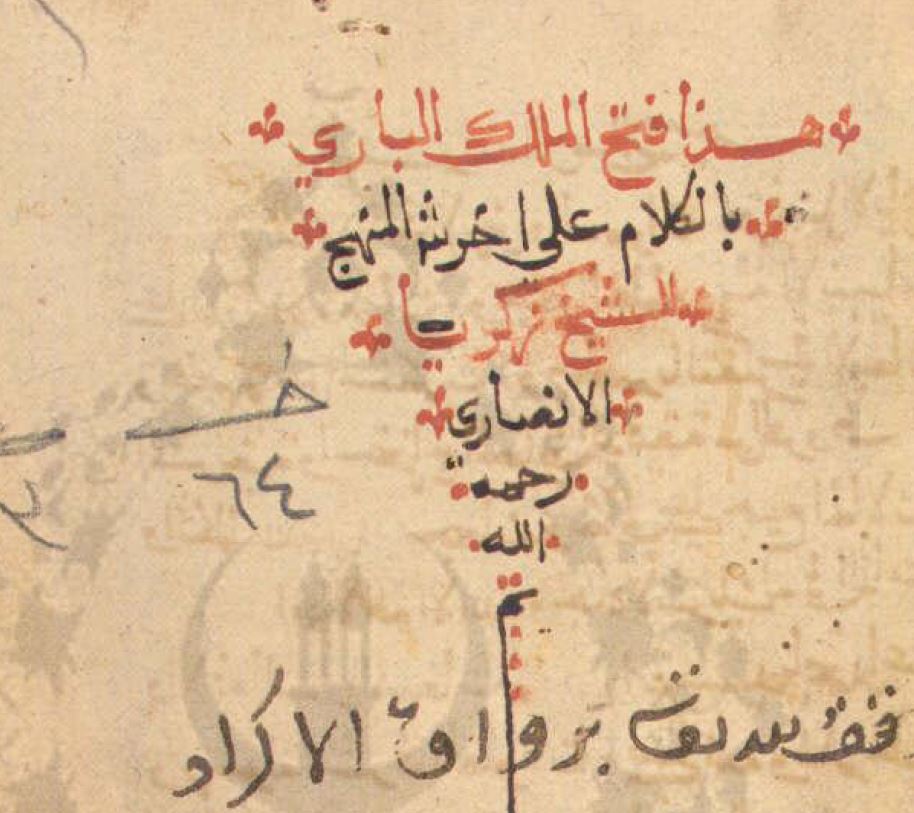 هذا فتح الملك الباري
بالكلام على اخر شرح المنهج
للشيخ زكريا
الانصاري
رحمه
الله
تم
٦٤
برواق الاكراد